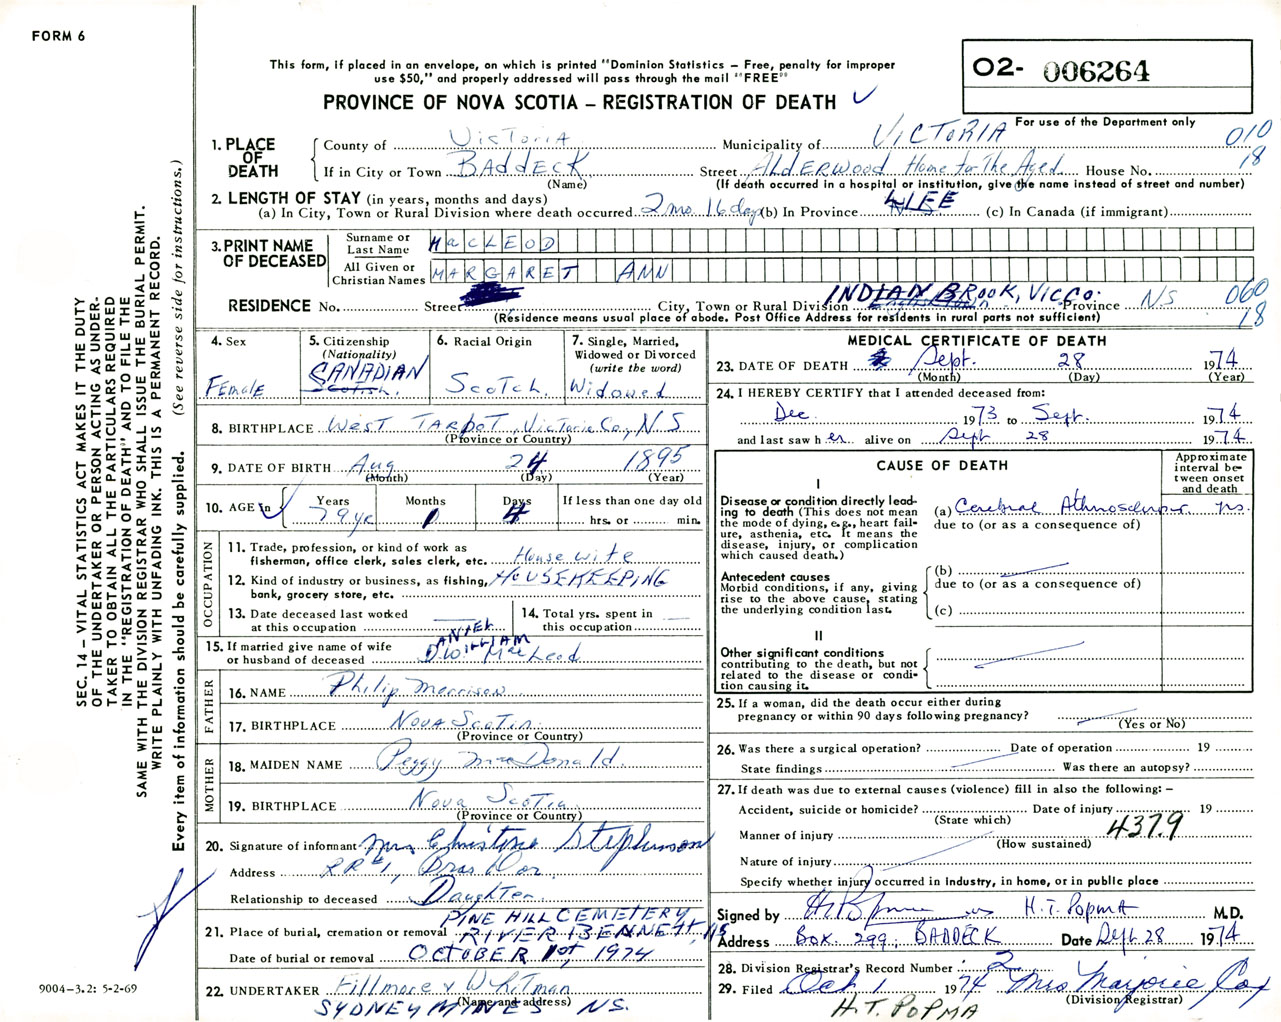 FORM 6
This form, if placed in an envelope, on which is printed "Dominion Statistics – Free, penalty for improper
use $50," and properly addressed will pass through the mail "FREE"
PROVINCE OF NOVA SCOTIA – REGISTRATION OF DEATH ✓
O2- 006264
For use of the Department only
SEC. 14 – VITAL STATISTICS ACT MAKES IT THE DUTY
OF THE UNDERTAKER OR PERSON ACTING AS UNDER-
TAKER TO OBTAIN ALL THE PARTICULARS REQUIRED
IN THE "REGISTRATION OF DEATH" AND TO FILE THE
SAME WITH THE DIVISION REGISTRAR WHO SHALL ISSUE THE BURIAL PERMIT.
WRITE PLAINLY WITH UNFADING INK. THIS IS A PERMANENT RECORD.
Every item of information should be carefully supplied. (See reverse side for instructions.)
1. PLACE OF DEATH
County of Victoria Municipality of VICTORIA 010
If in City or Town BADDECK Street Alderwood Home for The Aged House No. 18
(Name) (If death occurred in a hospital or institution, give the name instead of street and number)
2. LENGTH OF STAY (in years, months and days)
(a) In City, Town or Rural Division where death occurred 2 mo 16 days (b) In Province LIFE (c) In Canada (if immigrant)
3. PRINT NAME OF DECEASED
Surname or Last Name MacLEOD
All Given or Christian Names MARGARET ANN
RESIDENCE No. Street City, Town or Rural Division INDIAN BROOK, VIC Co. Province NS 060
(Residence means usual place of abode. Post Office Address for residents in rural parts not sufficient) 18
4. Sex Female
5. Citizenship (Nationality) CANADIAN Scotish
6. Racial Origin Scotch
7. Single, Married, Widowed or Divorced (write the word) Widowed
8. BIRTHPLACE West TARBOT Victoria Co, NS
(Province or Country)
9. DATE OF BIRTH Aug 24 1895
(Month) (Day) (Year)
10. AGE in Years Months Days If less than one day old
79 yr 1 4 hrs. or min.
OCCUPATION
11. Trade, profession, or kind of work as
fisherman, office clerk, sales clerk, etc. House wife
12. Kind of industry or business, as fishing, HOUSEKEEPING
bank, grocery store, etc.
13. Date deceased last worked
at this occupation
14. Total yrs. spent in
this occupation
15. If married give name of wife
or husband of deceased DANIEL WILLIAM MacLeod
FATHER
16. NAME Philip Morrison
17. BIRTHPLACE Nova Scotia
(Province or Country)
MOTHER
18. MAIDEN NAME Peggy MacDonald
19. BIRTHPLACE Nova Scotia
(Province or Country)
20. Signature of informant Mrs Christine Stephenson
Address RR #1, Bras D'or
Relationship to deceased Daughter
PINE HILL CEMETERY
21. Place of burial, cremation or removal RIVER BENNETT, NS
Date of burial or removal OCTOBER 1st, 1974
22. UNDERTAKER Fillmore & Whitman
(Name and address)
SYDNEY MINES NS.
9004-3.2: 5-2-69
MEDICAL CERTIFICATE OF DEATH
23. DATE OF DEATH Sept. 28 1974
(Month) (Day) (Year)
24. I HEREBY CERTIFY that I attended deceased from:
Dec. 1973 to Sept. 1974
and last saw her alive on Sept 28 1974
CAUSE OF DEATH
Approximate interval between onset and death
I
Disease or condition directly lead-
ing to death (This does not mean
the mode of dying, e.g., heart fail-
ure, asthenia, etc. It means the
disease, injury, or complication
which caused death.)
(a) Cerebral yrs.
due to (or as a consequence of)
Antecedent causes
Morbid conditions, if any, giving
rise to the above cause, stating
the underlying condition last.
(b)
due to (or as a consequence of)
(c)
II
Other significant conditions
contributing to the death, but not
related to the disease or condi-
tion causing it.
25. If a woman, did the death occur either during
pregnancy or within 90 days following pregnancy?
(Yes or No)
26. Was there a surgical operation? Date of operation 19
State findings Was there an autopsy?
27. If death was due to external causes (violence) fill in also the following: –
Accident, suicide or homicide? Date of injury 19
(State which)
Manner of injury 437.9
(How sustained)
Nature of injury
Specify whether injury occurred in Industry, in home, or in public place
Signed by H.T. POPMA M.D.
Address Box 299, BADDECK Date Sept 28 1974
28. Division Registrar's Record Number 2
29. Filed Oct 1 1974 Mrs Marjorie Cox
(Division Registrar)
H.T. POPMA